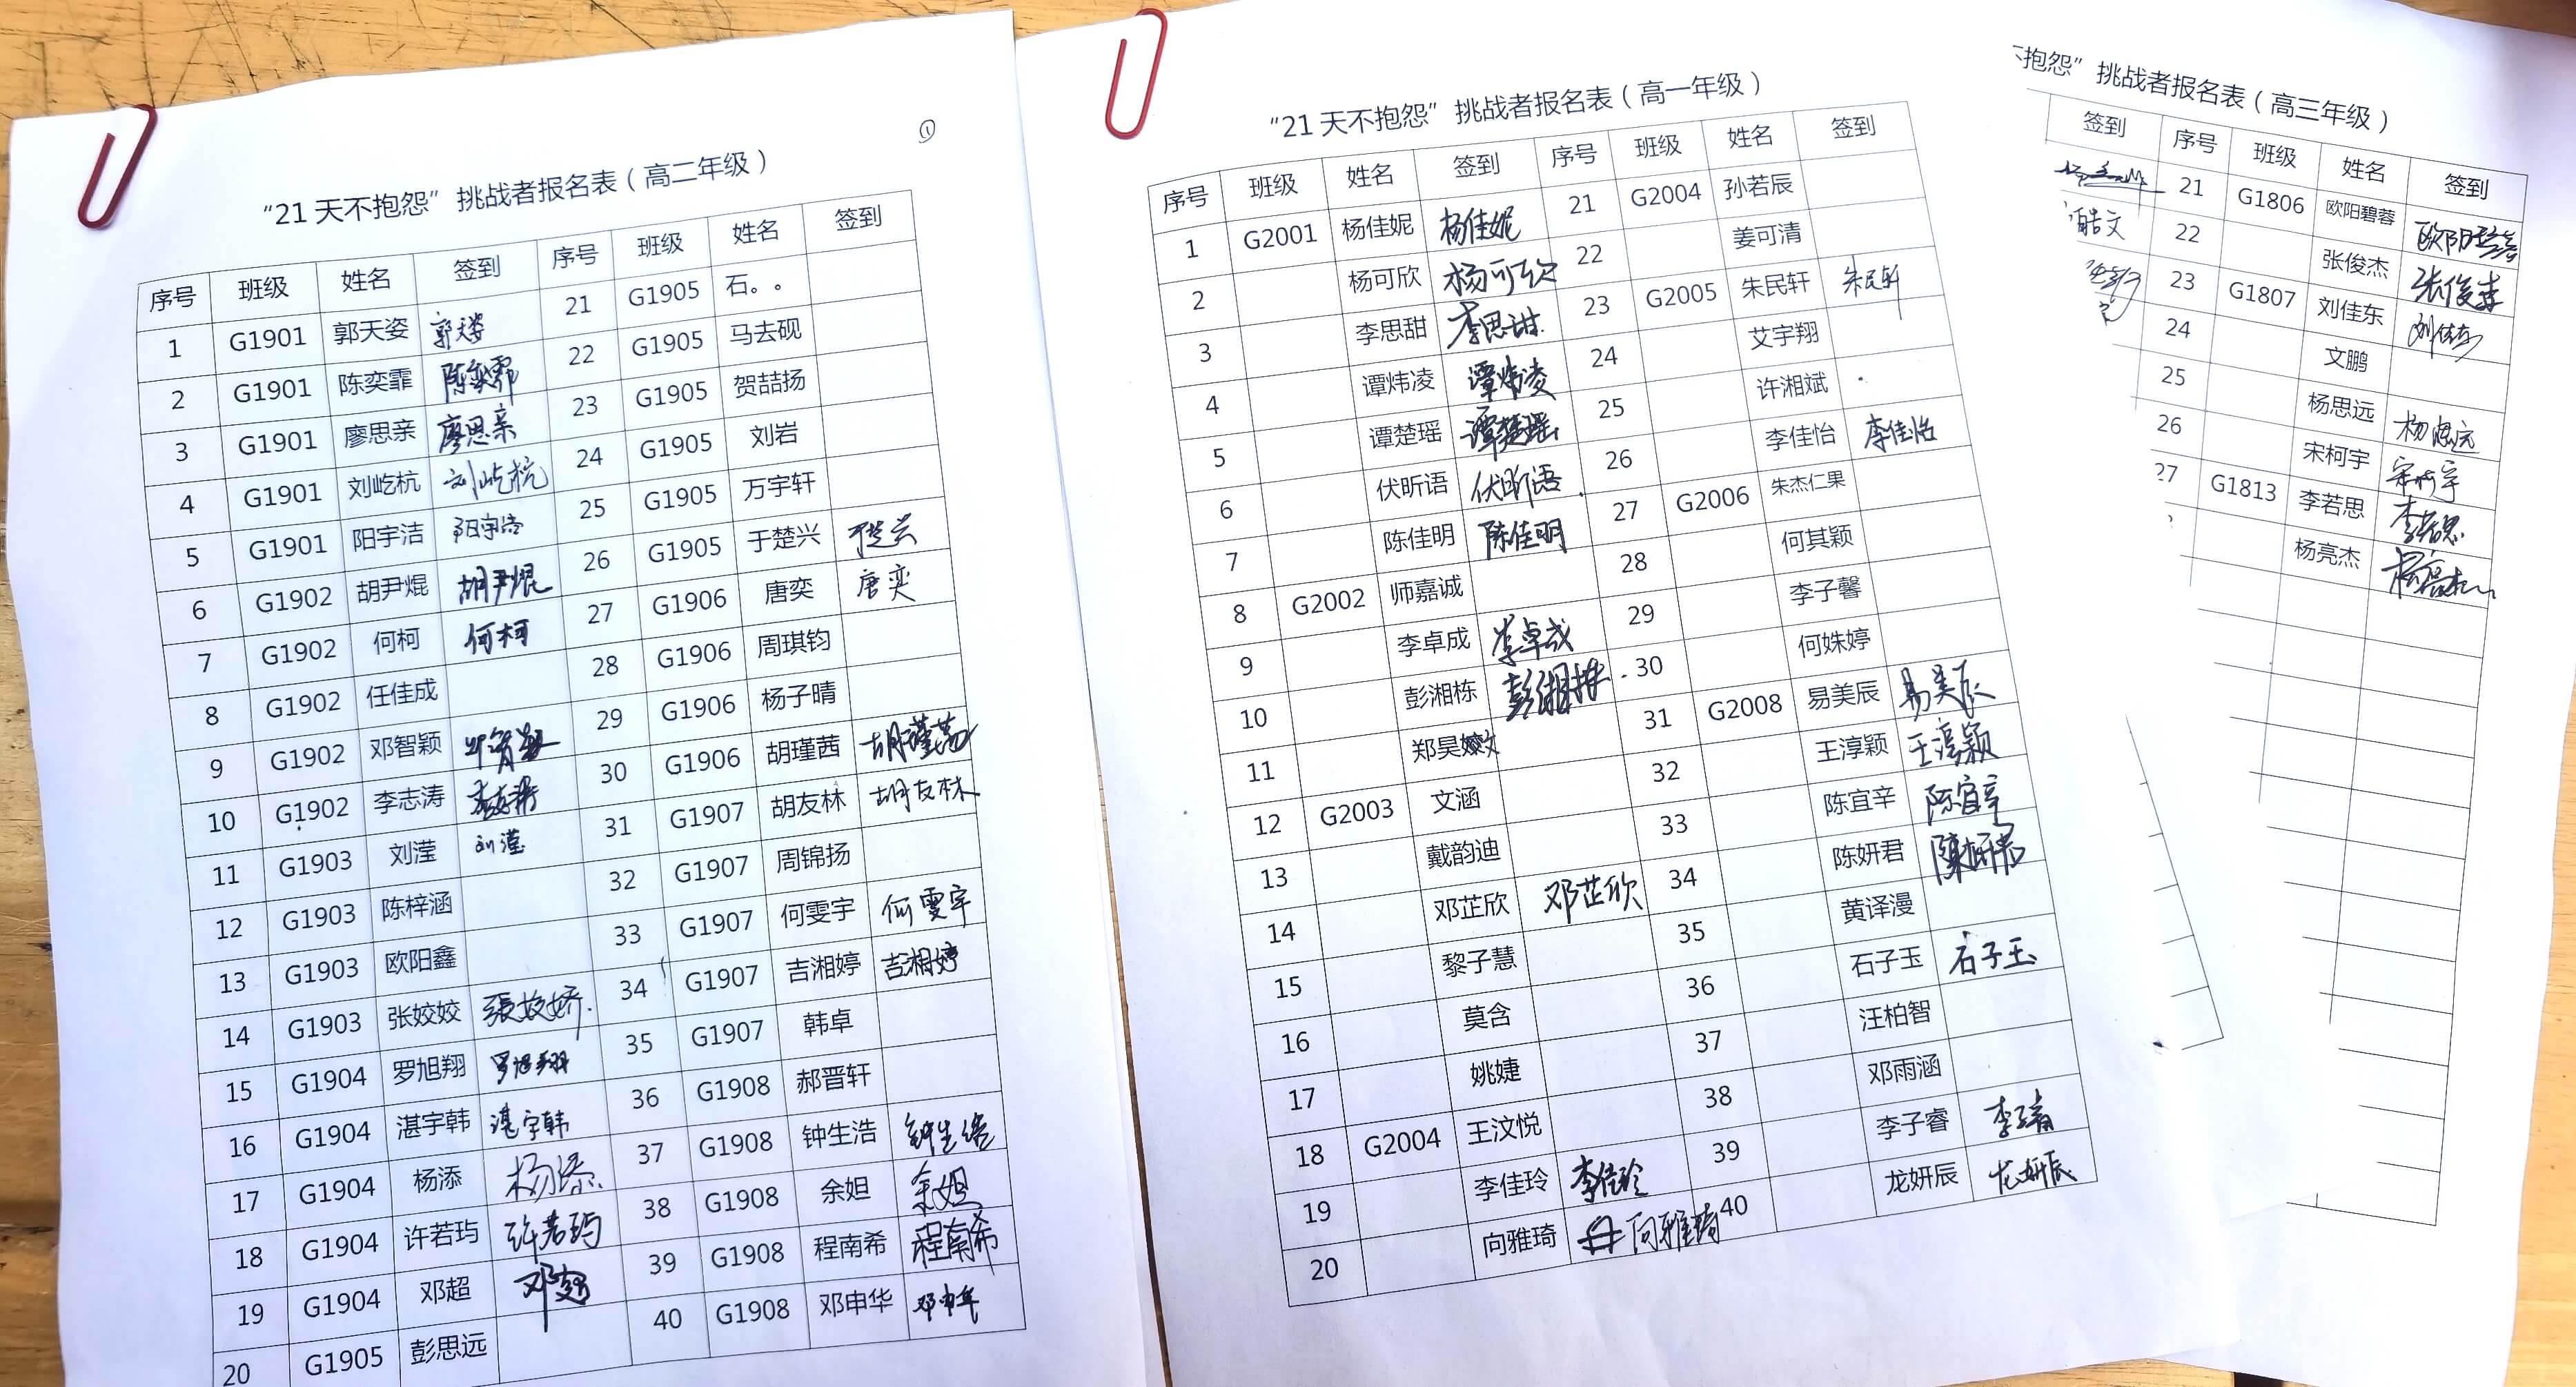 ①
“21天不抱怨”挑战者报名表（高二年级）
序号 班级 姓名 签到 序号 班级 姓名 签到
1 G1901 郭天姿 郭天姿 21 G1905 石。。
2 G1901 陈奕霏 陈奕霏 22 G1905 马去砚
3 G1901 廖思亲 廖思亲 23 G1905 贺喆扬
4 G1901 刘屹杭 刘屹杭 24 G1905 刘岩
5 G1901 阳宇洁 阳宇洁 25 G1905 万宇轩
6 G1902 胡尹焜 胡尹焜 26 G1905 于楚兴 于楚兴
7 G1902 何柯 何柯 27 G1906 唐奕 唐奕
8 G1902 任佳成 28 G1906 周琪钧
9 G1902 邓智颖 邓智颖 29 G1906 杨子晴
10 G1902 李志涛 李志涛 30 G1906 胡瑾茜 胡瑾茜
11 G1903 刘滢 刘滢 31 G1907 胡友林 胡友林
12 G1903 陈梓涵 32 G1907 周锦扬
13 G1903 欧阳鑫 33 G1907 何雯宇 何雯宇
14 G1903 张姣姣 張姣娇. 34 G1907 吉湘婷 吉湘婷
15 G1904 罗旭翔 罗旭翔 35 G1907 韩卓
16 G1904 湛宇韩 湛宇韩 36 G1908 郝晋轩
17 G1904 杨添 杨添 37 G1908 钟生浩 钟生浩
18 G1904 许若玙 许若玙 38 G1908 余妲 余妲
19 G1904 邓超 邓超 39 G1908 程南希 程南希
20 G1905 彭思远 40 G1908 邓申华 邓申华
“21天不抱怨”挑战者报名表（高一年级）
序号 班级 姓名 签到 序号 班级 姓名 签到
1 G2001 杨佳妮 杨佳妮 21 G2004 孙若辰
2 杨可欣 杨可欣 22 姜可清
3 李思甜 李思甜 23 G2005 朱民轩 朱民轩
4 谭炜凌 谭炜凌 24 艾宇翔
5 谭楚瑶 谭楚瑶 25 许湘斌
6 伏昕语 伏昕语 26 李佳怡 李佳怡
7 陈佳明 陈佳明 27 G2006 朱杰仁果
8 G2002 师嘉诚 28 何其颖
9 李卓成 李卓成 29 李子馨
10 彭湘栋 彭湘栋 30 何姝婷
11 郑昊 31 G2008 易美辰 易美辰
12 G2003 文涵 32 王淳颖 王淳颖
13 戴韵迪 33 陈宜辛 陈宜辛
14 邓芷欣 邓芷欣 34 陈妍君 陳妍君
15 黎子慧 35 黄译漫
16 莫含 36 石子玉 石子玉
17 姚婕 37 汪柏智
18 G2004 王汶悦 38 邓雨涵
19 李佳玲 李佳玲 39 李子睿 李子睿
20 向雅琦 向雅琦 40 龙妍辰 龙妍辰
不抱怨”挑战者报名表（高三年级）
签到 序号 班级 姓名 签到
21 G1806 欧阳碧蓉 欧阳碧蓉
皓文 22 张俊杰 张俊杰
23 G1807 刘佳东 刘佳东
24 文鹏
25 杨思远 杨思远
26 宋柯宇 宋柯宇
27 G1813 李若思 李若思
杨亮杰 杨亮杰